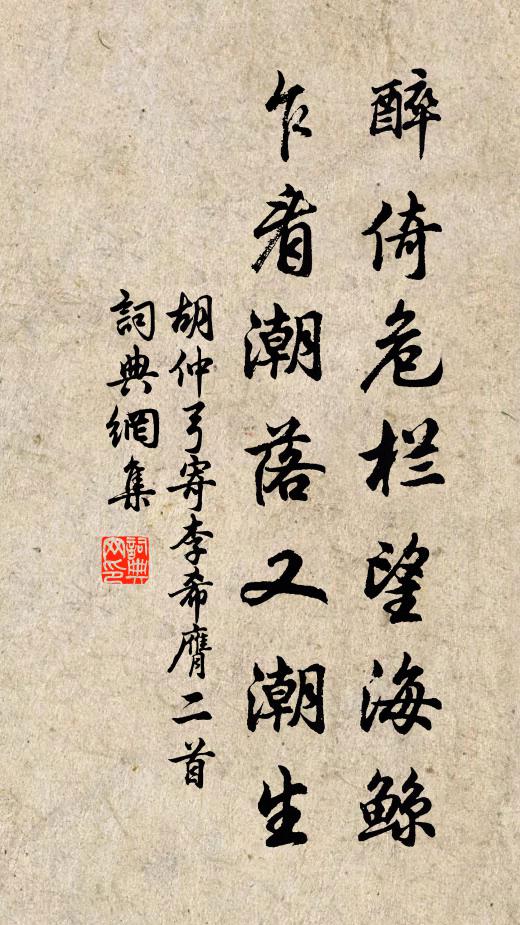 醉倚危栏望海鲸
乍看潮落又潮生
胡仲弓寄李希膺二首
詞典網集
詞典网印